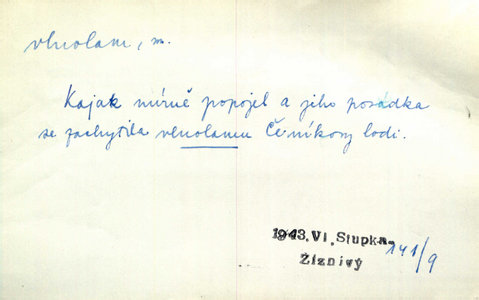 vlnolam, m.
Kajak mírně popojel a jeho posádka
se zachytila vlnolamu Čeníkovy lodi.
1943.Vl.Stupka-
Žíznivý
141/9